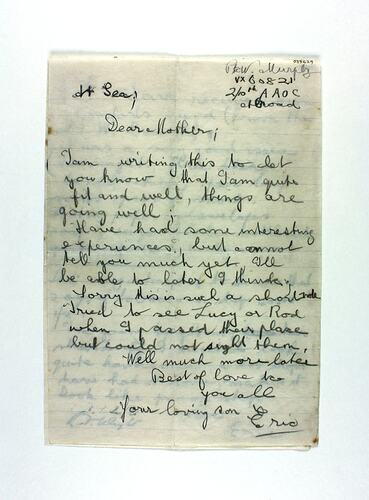 Murphy
VX60821
2/10th AAOC
abroad
At Sea;
Dear Mother;
I am writing this to let
you know that I am quite
fit and well, things are
going well;
Have had some interesting
experiences, but cannot
tell you much yet I'll
be able to later I think.
Sorry this is such a short note
Tried to see Lucy or Rod
when I passed their place
but could not sight them,
Well much more later
Best of love to
you all
Your loving son
Eric